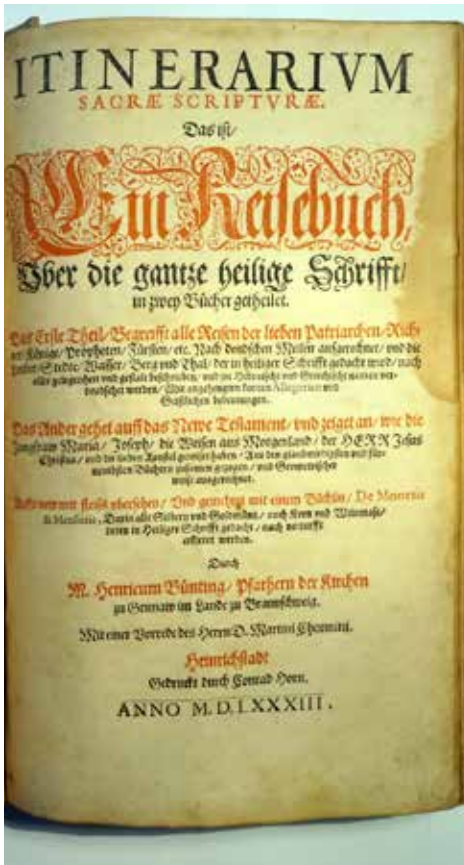 ITINERARIVM
SACRÆ SCRIPTVRÆ.
Das ist/
Ein Reisebuch,
Vber die gantze heilige Schrifft/
in zwey Bücher getheilet.
Das Erste Theil/Begreifft alle Reisen der lieben Patriarchen/Rich-
ter/Könige/Propheten/Fürsten/etc. Nach deudschen Meilen ausgerechnet/vnd die
Lender/Stedte/Wasser/Berg vnd Thal/der in heiliger Schrifft gedacht wird/nach
aller gelegenheit vnd gestalt beschrieben/vnd die Hebraische vnd Griechische namen ver-
deudschet worden/Mit angehengten kurtzen Allegorien vnd
Geistlichen bedeutungen.
Das Ander gehet auff das Newe Testament/vnd zeiget an/wie die
Jungfraw Maria/Joseph/die Weisen aus Morgenland/der HERR Jesus
Christus/vnd die lieben Apostel gereiset haben/Aus den glaubwirdigsten vnd für-
nembsten Büchern zusamen gezogen/vnd Geometrischer
weise ausgerechnet.
Auffs new mit fleiss vbersehen/Vnd gemehret mit einem Büchlin/De Monetis
& Mensuris, Darin alle Silbern vnd Goldmüntz/auch Korn vnd Weinmasse/
deren in Heiliger Schrifft gedacht/nach notturfft
erkleret werden.
Durch
M. Henricum Bünting/Pfarhern der Kirchen
zu Gronaw im Lande zu Braunschweig.
Mit einer Vorrede des Herrn D. Martini Chemnitij.
Heinrichstadt
Gedruckt durch Conrad Horn.
ANNO M.D.LXXXIII.